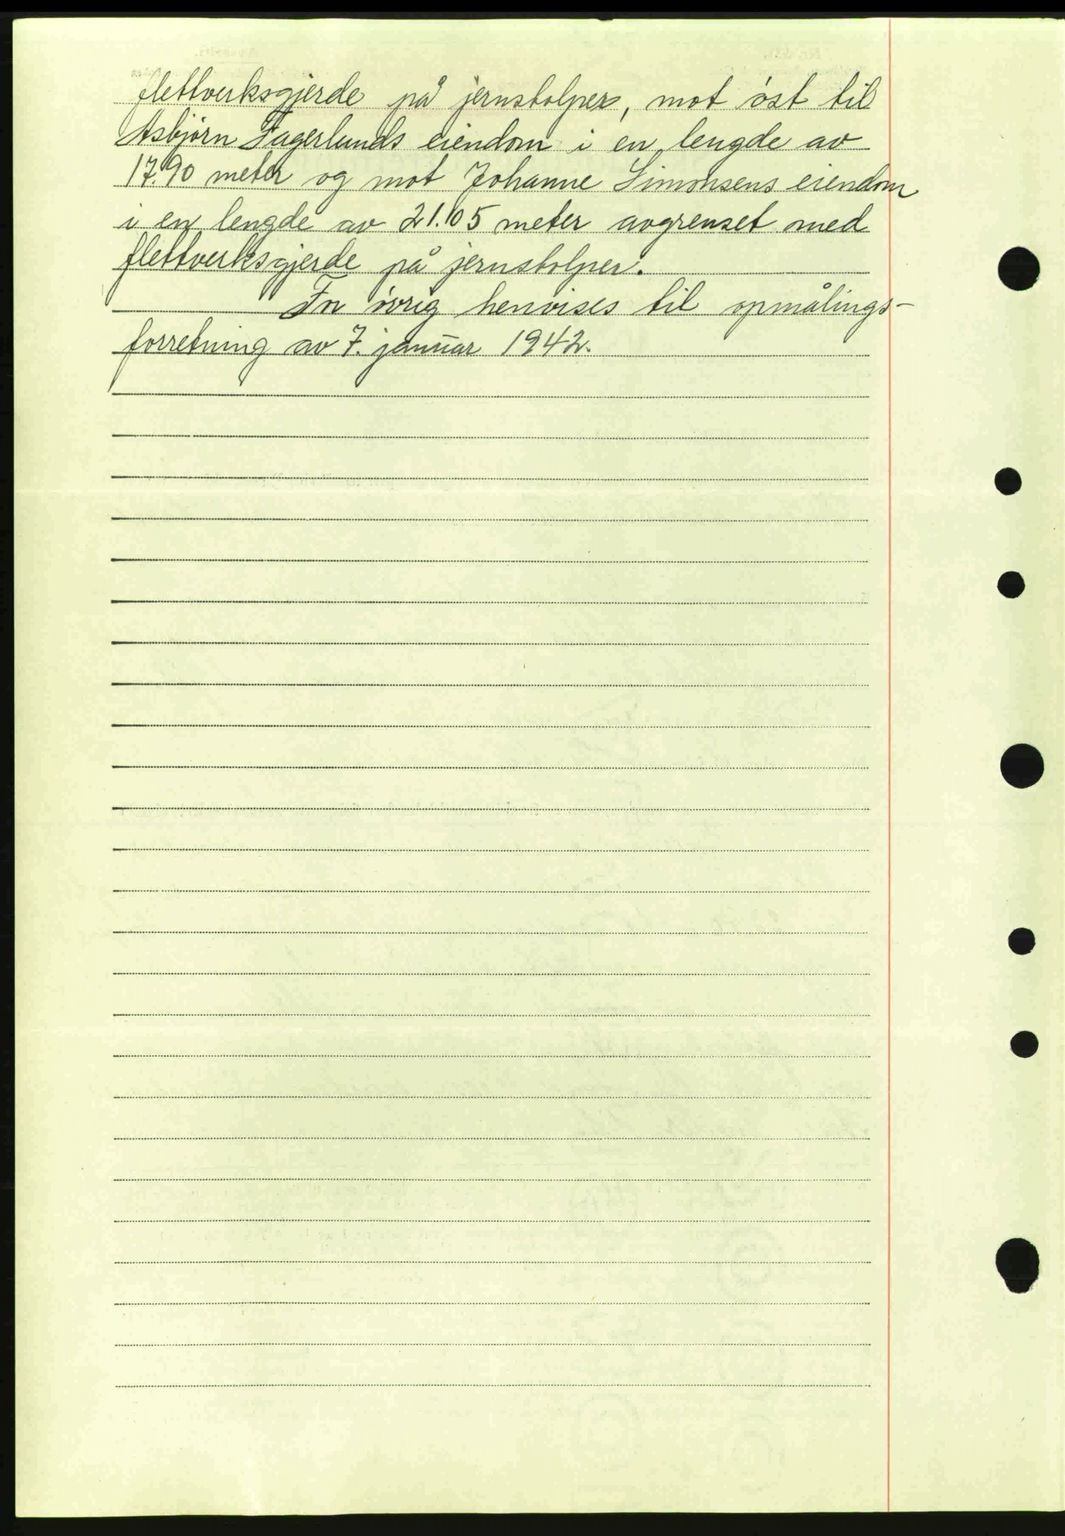 flettverksgjerde på jernstolper, mot øst til
Asbjørn Fagerlunds eiendom i en lengde av
17.90 meter og mot Johanne Simonsens eiendom
i en lengde av 21.05 meter avgrenset med
flettverksgjerde på jernstolper.
For øvrig henvises til opmålings-
forretning av 7. januar 1942.